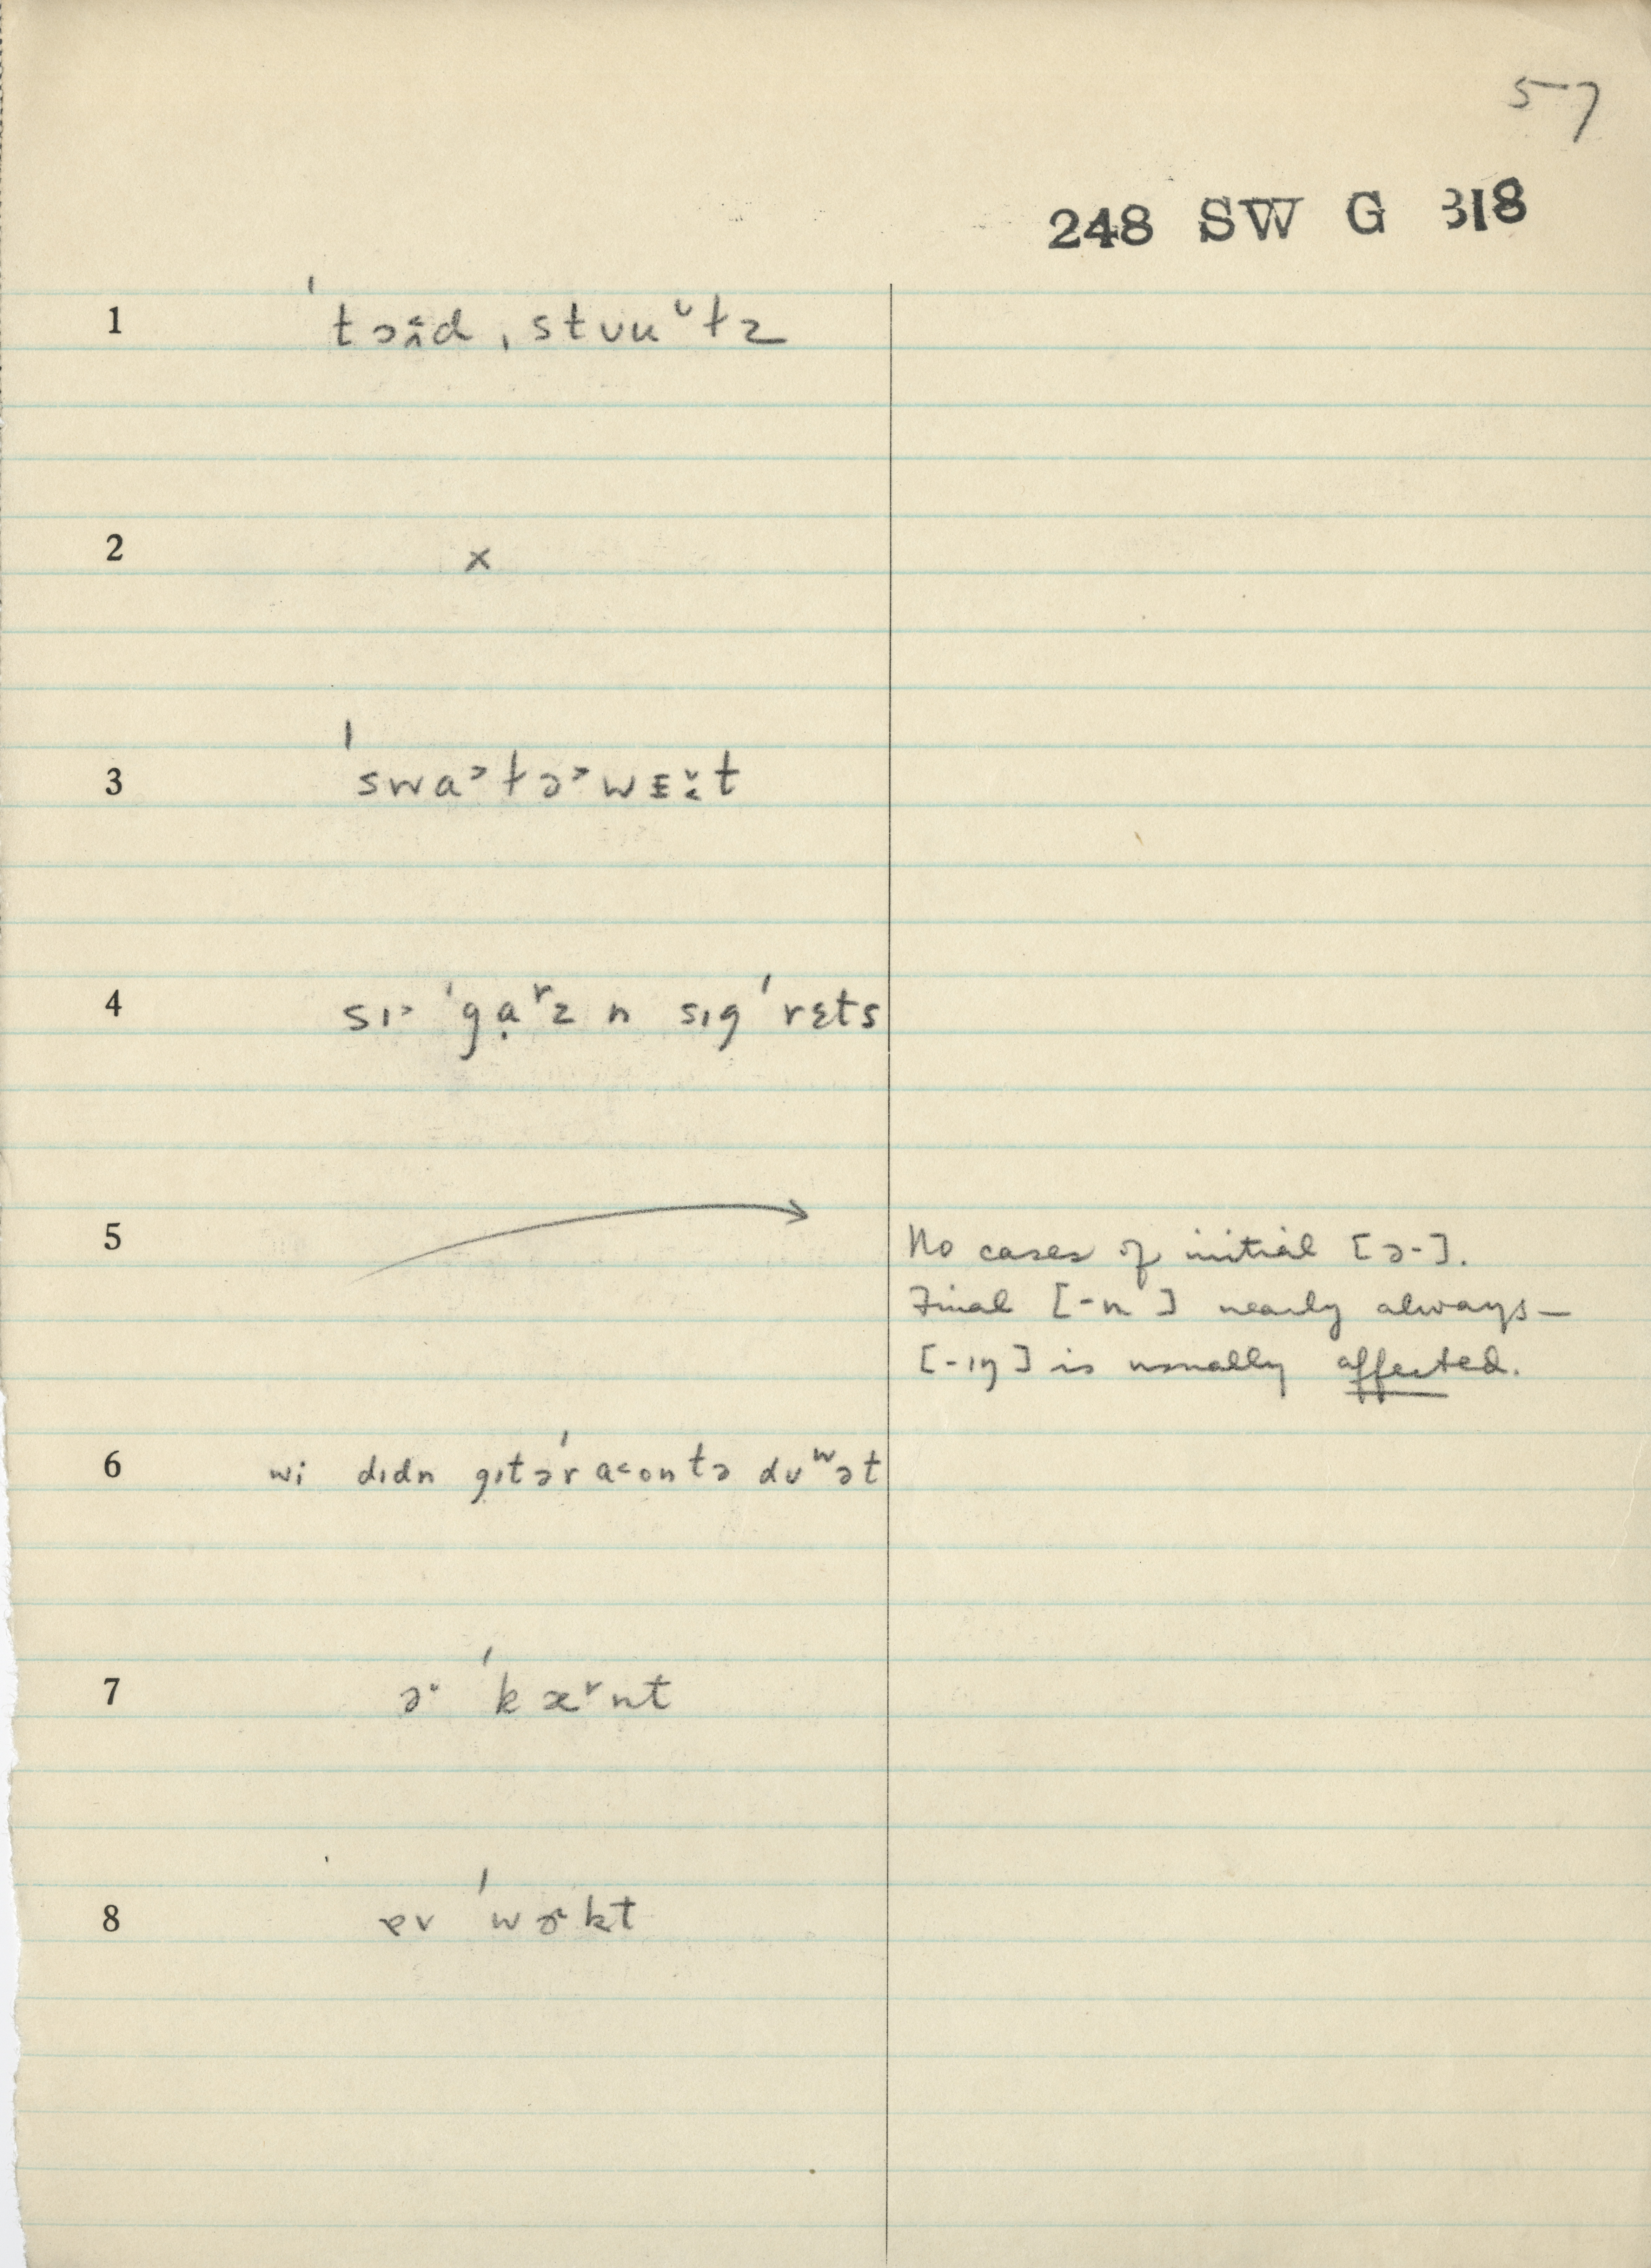 57
248 SW G 318
1 ˈtɔɪd ˌstʊuˇtz
2 x
3 ˈswa˃tə˃wɛɪt
4 sɪ˃ ˈgạʳz n sɪgˈrɛts
5 No cases of initial [ə-].
Final [-n] nearly always—
[-ɪŋ] is usually affected.
6 wi dɪdn gɪtəˈr a˂ontə du ʷət
7 ə· ˈkæˇnt
8 ɐv ˈwɚkt